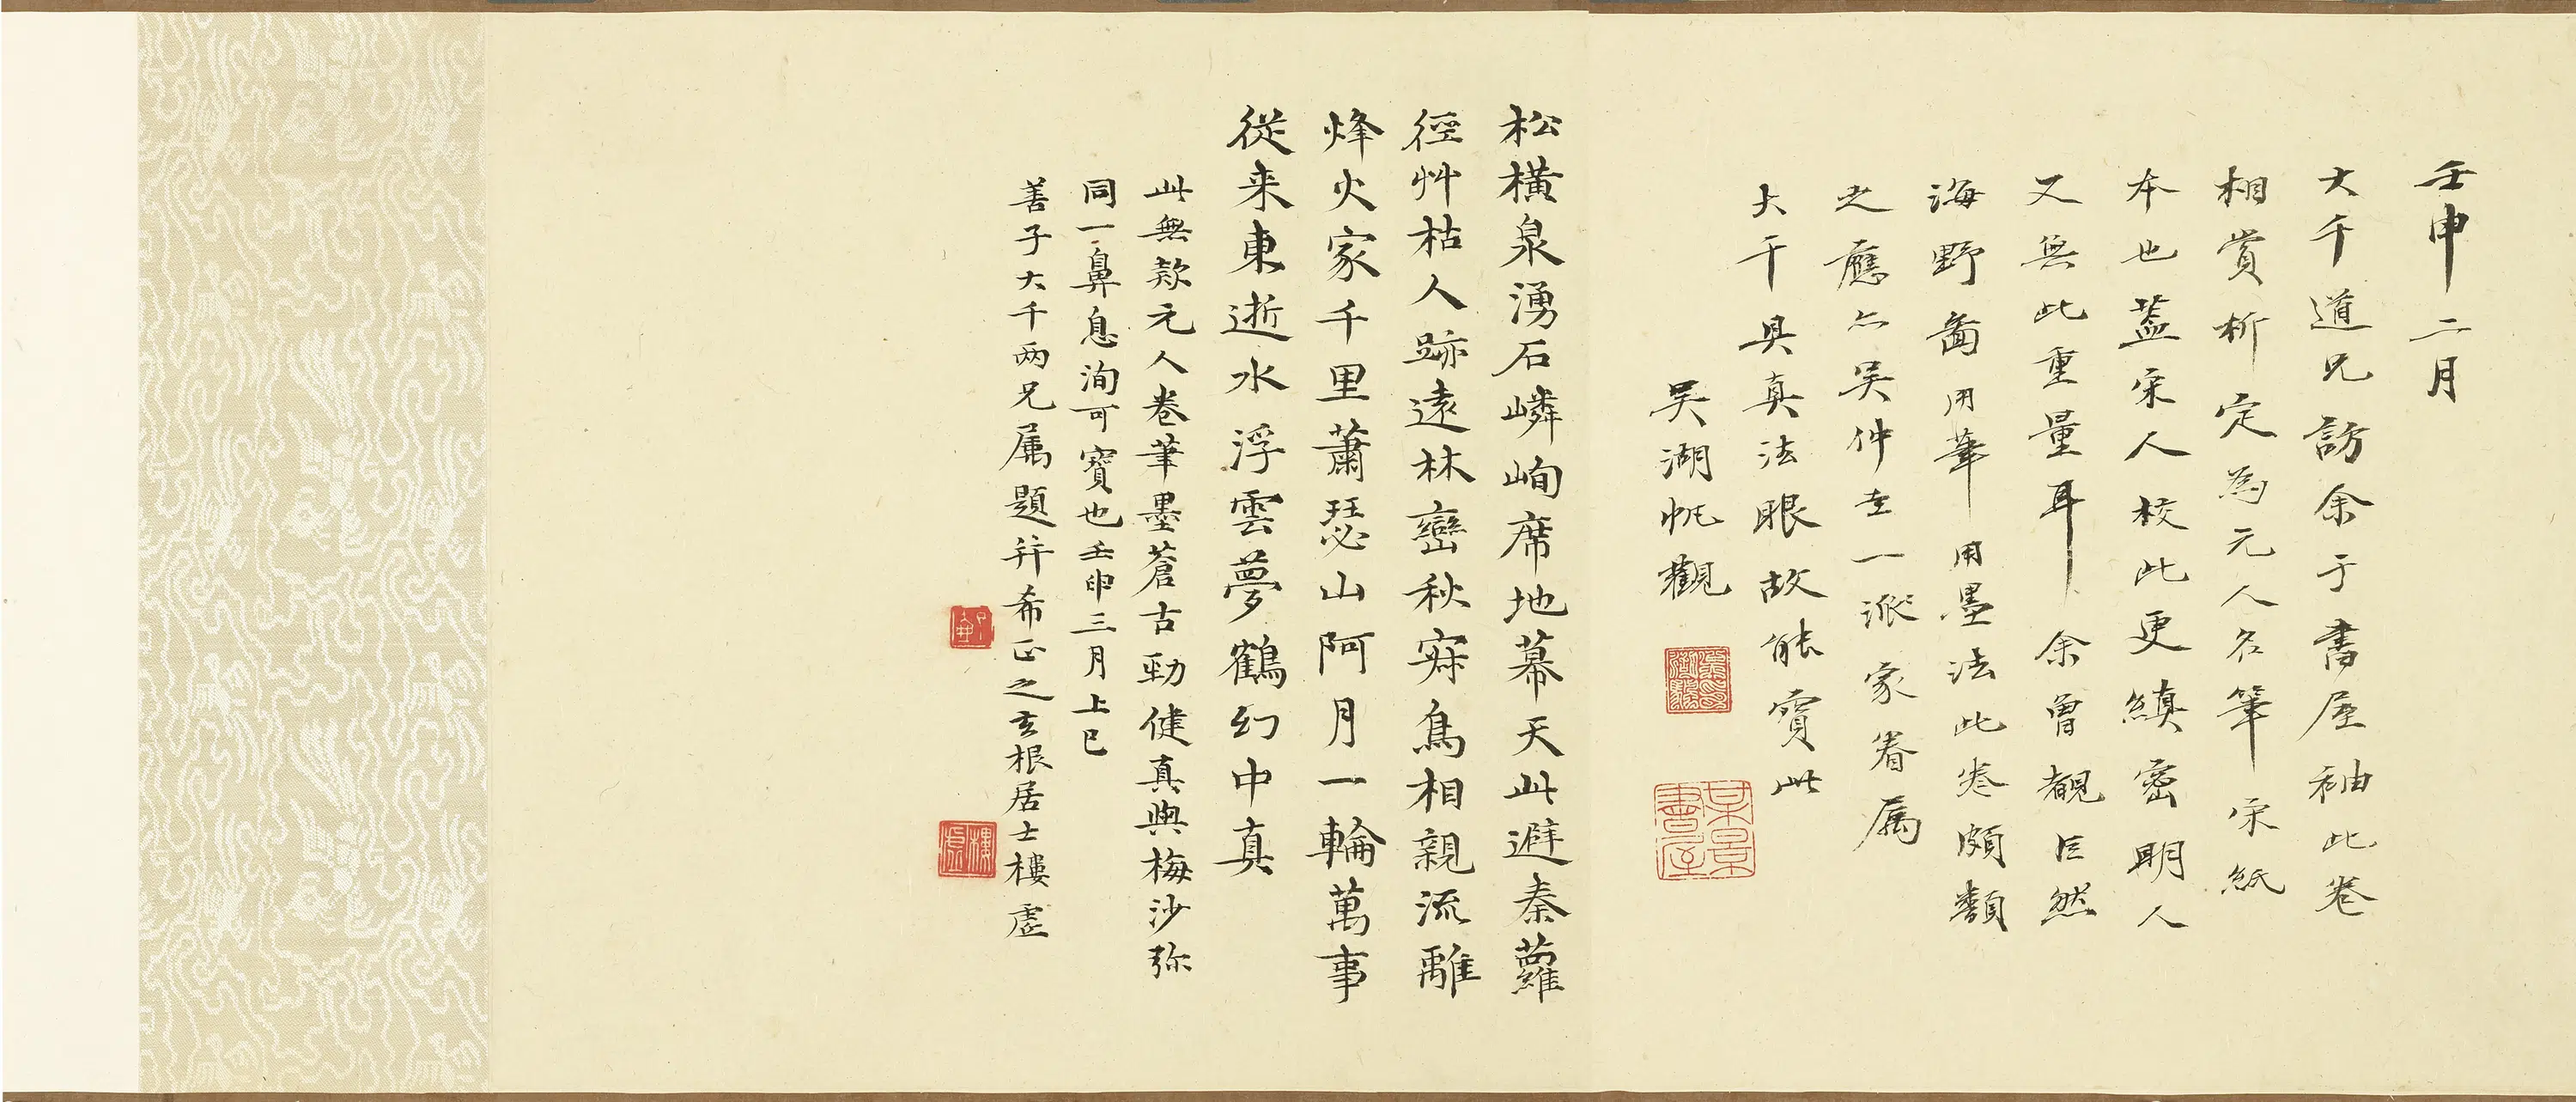 壬申二月
大千道兄訪余于書屋袖此卷
相賞析定為元人名筆宋紙
本也蓋宋人校此更縝密明人
又無此重量耳余曾觀巨然
海野圖用筆用墨法此卷頗類
之應亦吴仲圭一派家眷属
大千具真法眼故能寶此
吴湖帆觀
松橫泉湧石嶙峋席地幕天此避秦蘿
徑艸枯人跡遠林巒秋寂鳥相親流離
烽火家千里蕭瑟山阿月一輪萬事
從来東逝水浮雲夢鶴幻中真
此無款元人卷筆墨蒼古勁健真與梅沙弥
同一鼻息洵可寶也壬申三月上巳
善子大千两兄属題并希正之玄根居士樓虛
某景書屋
樓虛